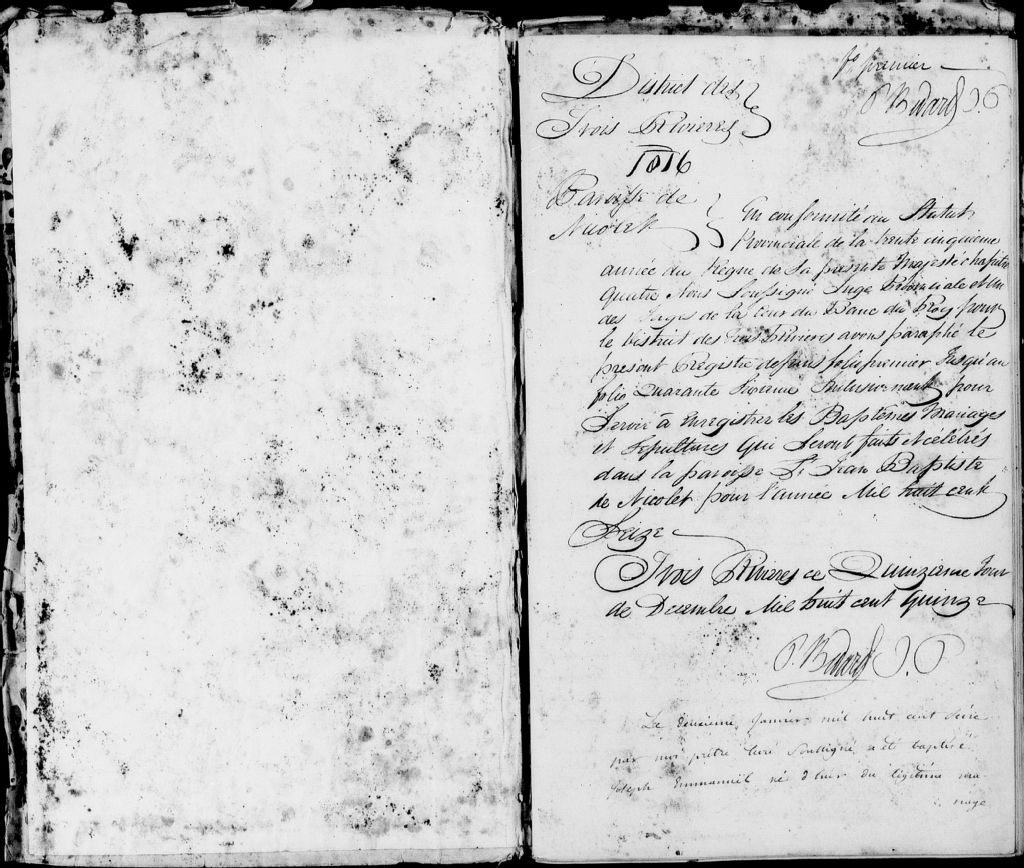 fo premier
P. Bedard J. P.
District des
Trois Rivieres
1816
Paroisse de
Nicolet
En conformité au Statut
Provinciale de la trente cinquieme
année du Règne de Sa presente Majesté chapitre
Quatre Nous Soussigné Juge Provinciale et Un
des Juges de la Cour du Banc du Roy pour
le District des Trois Rivieres avons paraphé le
present Registre depuis folio premier Jusqu'au
folio Quarante Inclusivement pour
Servir à Enregistrer les Baptêmes Mariages
et Sepultures Qui Seront faits et célébrés
dans la paroisse St Jean Baptiste
de Nicolet pour l'année Mil huit cent
Seize
Trois Rivieres ce Quinzieme Jour
de Decembre Mil huit cent Quinze
P. Bedard J. P.
Le deuxieme Janvier mil huit cent seize
par moi prêtre curé soussigné a été baptisé
Joseph Emmanuel né d'hier du légitime ma
riage